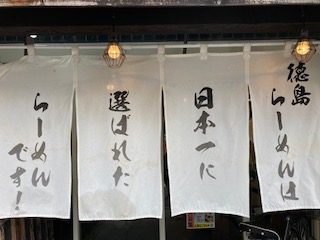 徳島
らーめんは
日本一に
選ばれた
らーめん
です！